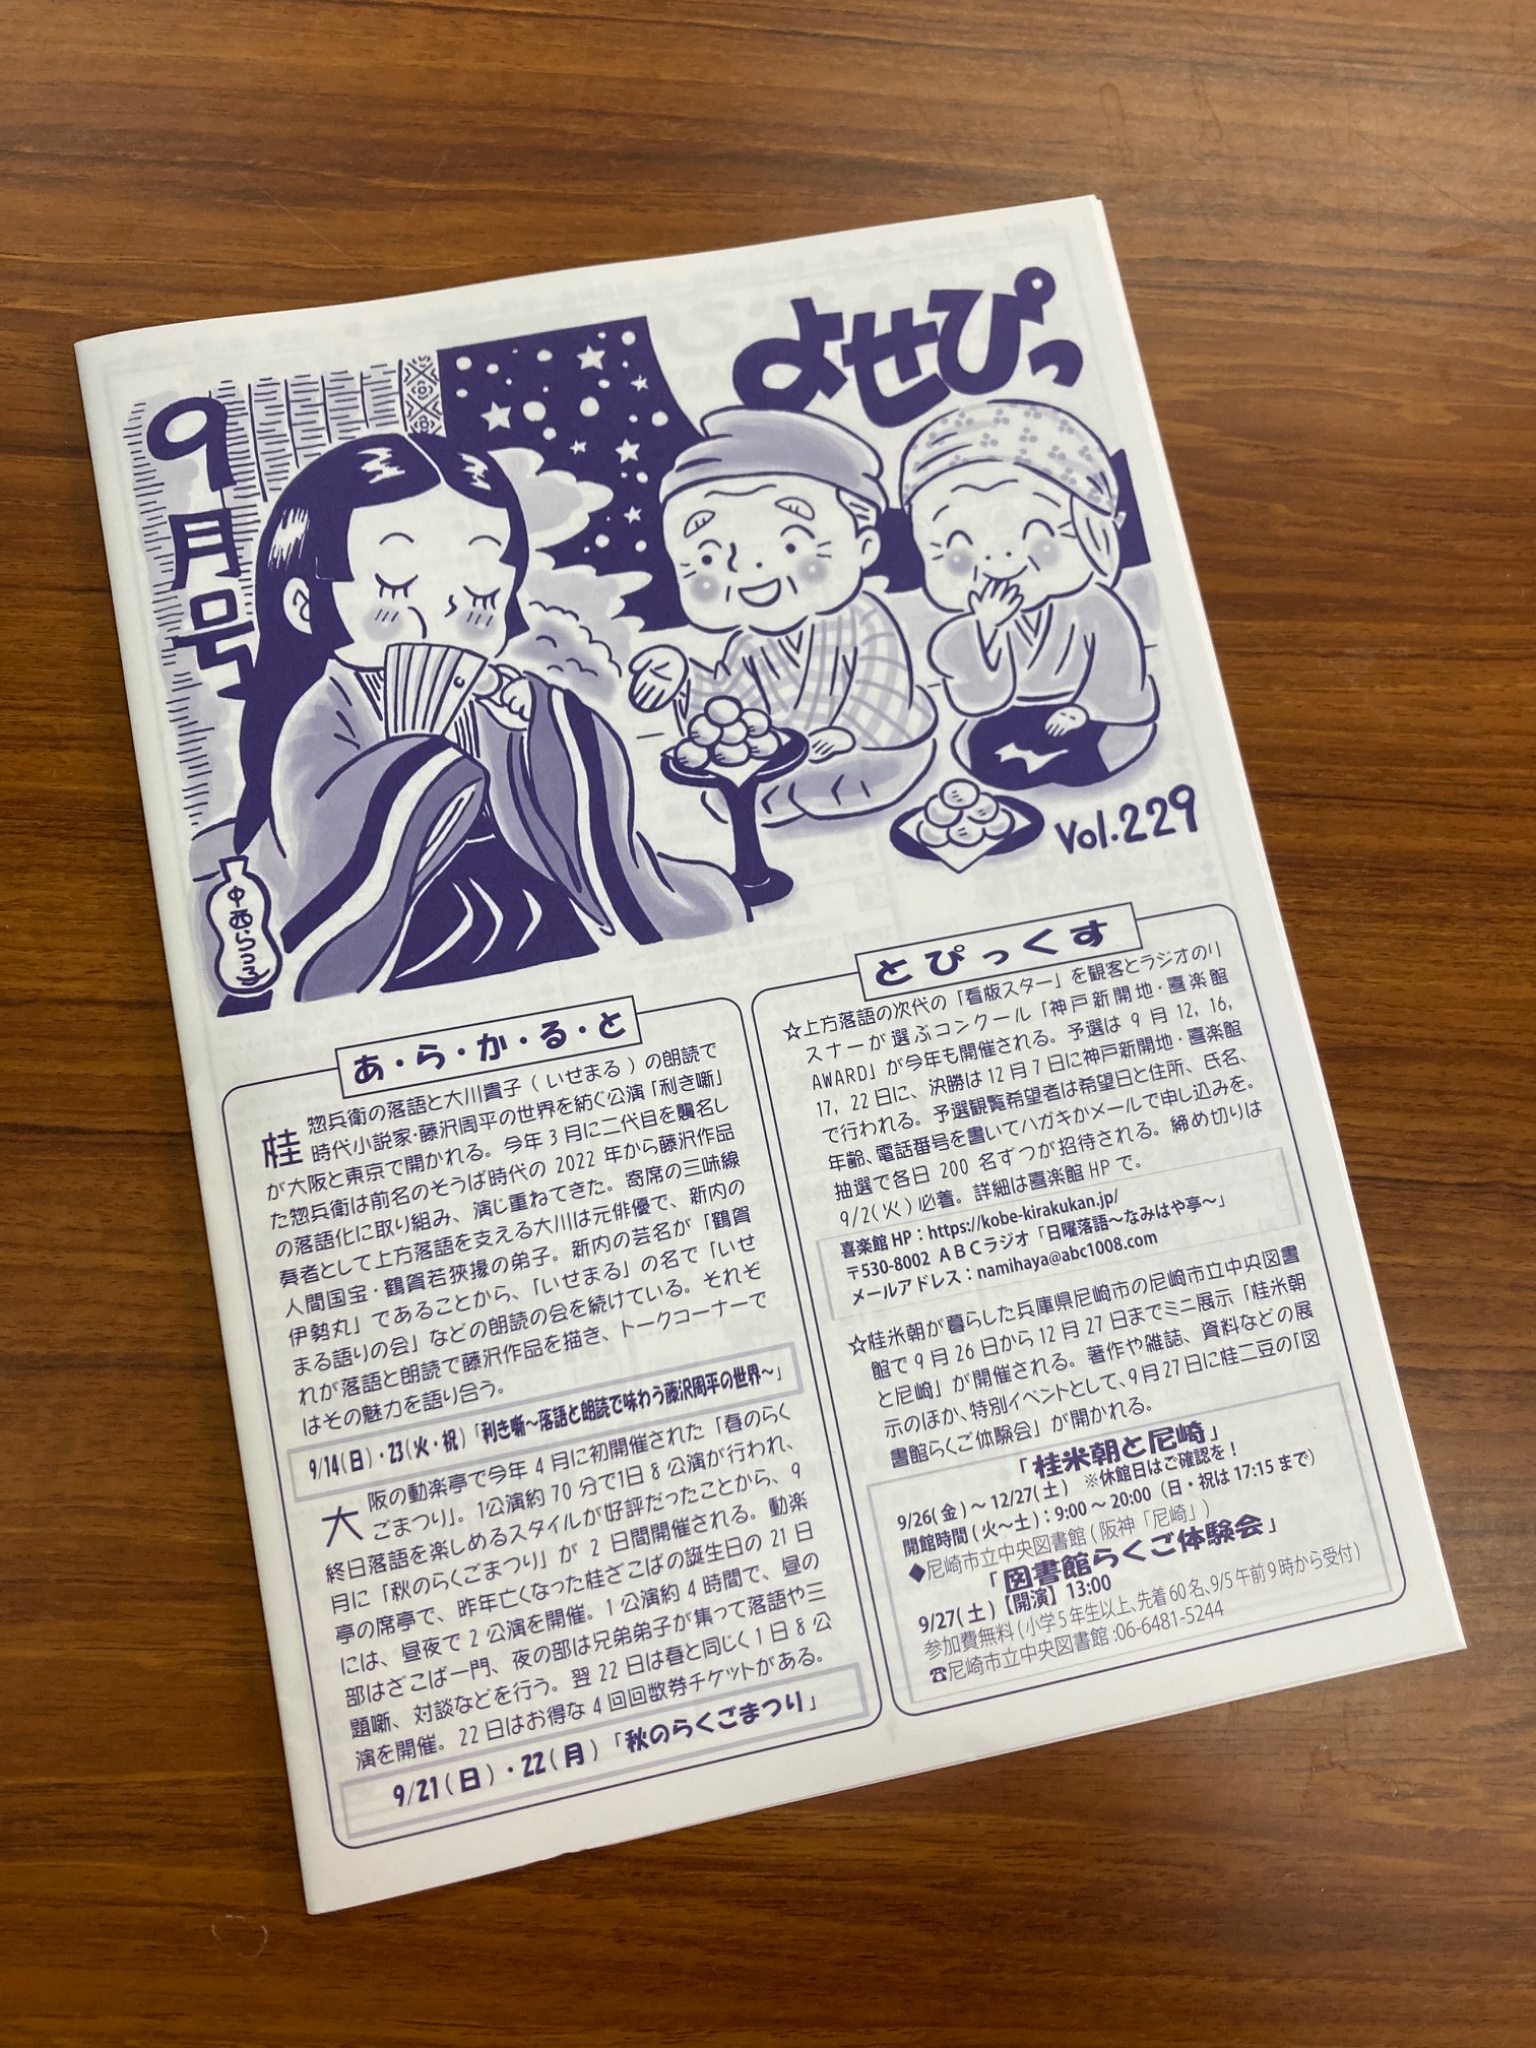 よせぴっ
9月号
Vol.229
中西らつ子
あ・ら・か・る・と
桂惣兵衛の落語と大川貴子(いせまる)の朗読で
時代小説家・藤沢周平の世界を紡ぐ公演「利き噺」
が大阪と東京で開かれる。今年3月に二代目を襲名し
た惣兵衛は前名のそうば時代の2022年から藤沢作品
の落語化に取り組み、演じ重ねてきた。寄席の三味線
奏者として上方落語を支える大川は元俳優で、新内の
人間国宝・鶴賀若狭掾の弟子。新内の芸名が「鶴賀
伊勢丸」であることから、「いせまる」の名で「いせ
まる語りの会」などの朗読の会を続けている。それぞ
れが落語と朗読で藤沢作品を描き、トークコーナーで
はその魅力を語り合う。
9/14(日)・23(火・祝)「利き噺～落語と朗読で味わう藤沢周平の世界～」
大阪の動楽亭で今年4月に初開催された「春のらく
ごまつり」。1公演約70分で1日8公演が行われ、
終日落語を楽しめるスタイルが好評だったことから、9
月に「秋のらくごまつり」が2日間開催される。動楽
亭の席亭で、昨年亡くなった桂ざこばの誕生日の21日
には、昼夜で2公演を開催。1公演約4時間で、昼の
部はざこば一門、夜の部は兄弟弟子が集って落語や三
題噺、対談などを行う。翌22日は春と同じく1日8公
演を開催。22日はお得な4回回数券チケットがある。
9/21(日)・22(月)「秋のらくごまつり」
とぴっくす
☆上方落語の次代の「看板スター」を観客とラジオのリ
スナーが選ぶコンクール「神戸新開地・喜楽館
AWARD」が今年も開催される。予選は9月12,16,
17,22日に、決勝は12月7日に神戸新開地・喜楽館
で行われる。予選観覧希望者は希望日と住所、氏名、
年齢、電話番号を書いてハガキかメールで申し込みを。
抽選で各日200名ずつが招待される。締め切りは
9/2(火)必着。詳細は喜楽館HPで。
喜楽館HP：https://kobe-kirakukan.jp/
〒530-8002 ABCラジオ「日曜落語～なみはや亭～」
メールアドレス：namihaya@abc1008.com
☆桂米朝が暮らした兵庫県尼崎市の尼崎市立中央図書
館で9月26日から12月27日までミニ展示「桂米朝
と尼崎」が開催される。著作や雑誌、資料などの展
示のほか、特別イベントとして、9月27日に桂二豆の「図
書館らくご体験会」が開かれる。
「桂米朝と尼崎」
9/26(金)～12/27(土) ※休館日はご確認を！
開館時間(火～土)：9:00～20:00(日・祝は17:15まで)
◆尼崎市立中央図書館(阪神「尼崎」)
「図書館らくご体験会」
9/27(土)【開演】13:00
参加費無料(小学5年生以上、先着60名、9/5午前9時から受付)
☎尼崎市立中央図書館:06-6481-5244